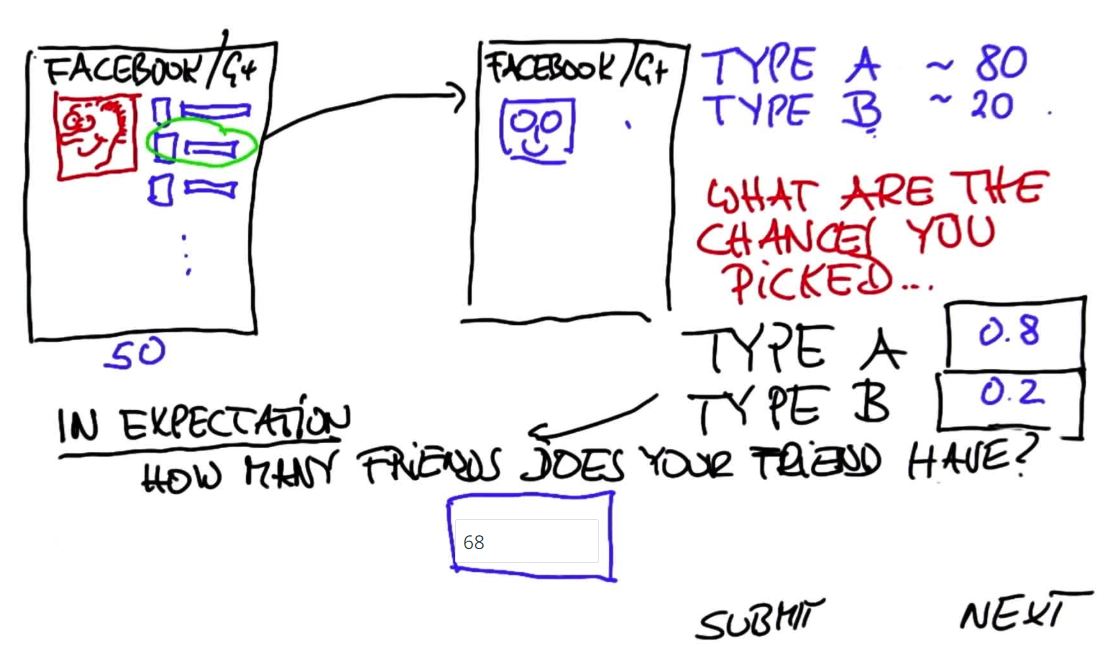 FACEBOOK/G+
50
FACEBOOK/G+
TYPE A ~ 80
TYPE B ~ 20
WHAT ARE THE
CHANCES YOU
PICKED...
TYPE A 0.8
TYPE B 0.2
IN EXPECTATION
HOW MANY FRIENDS DOES YOUR FRIEND HAVE?
68
SUBMIT NEXT